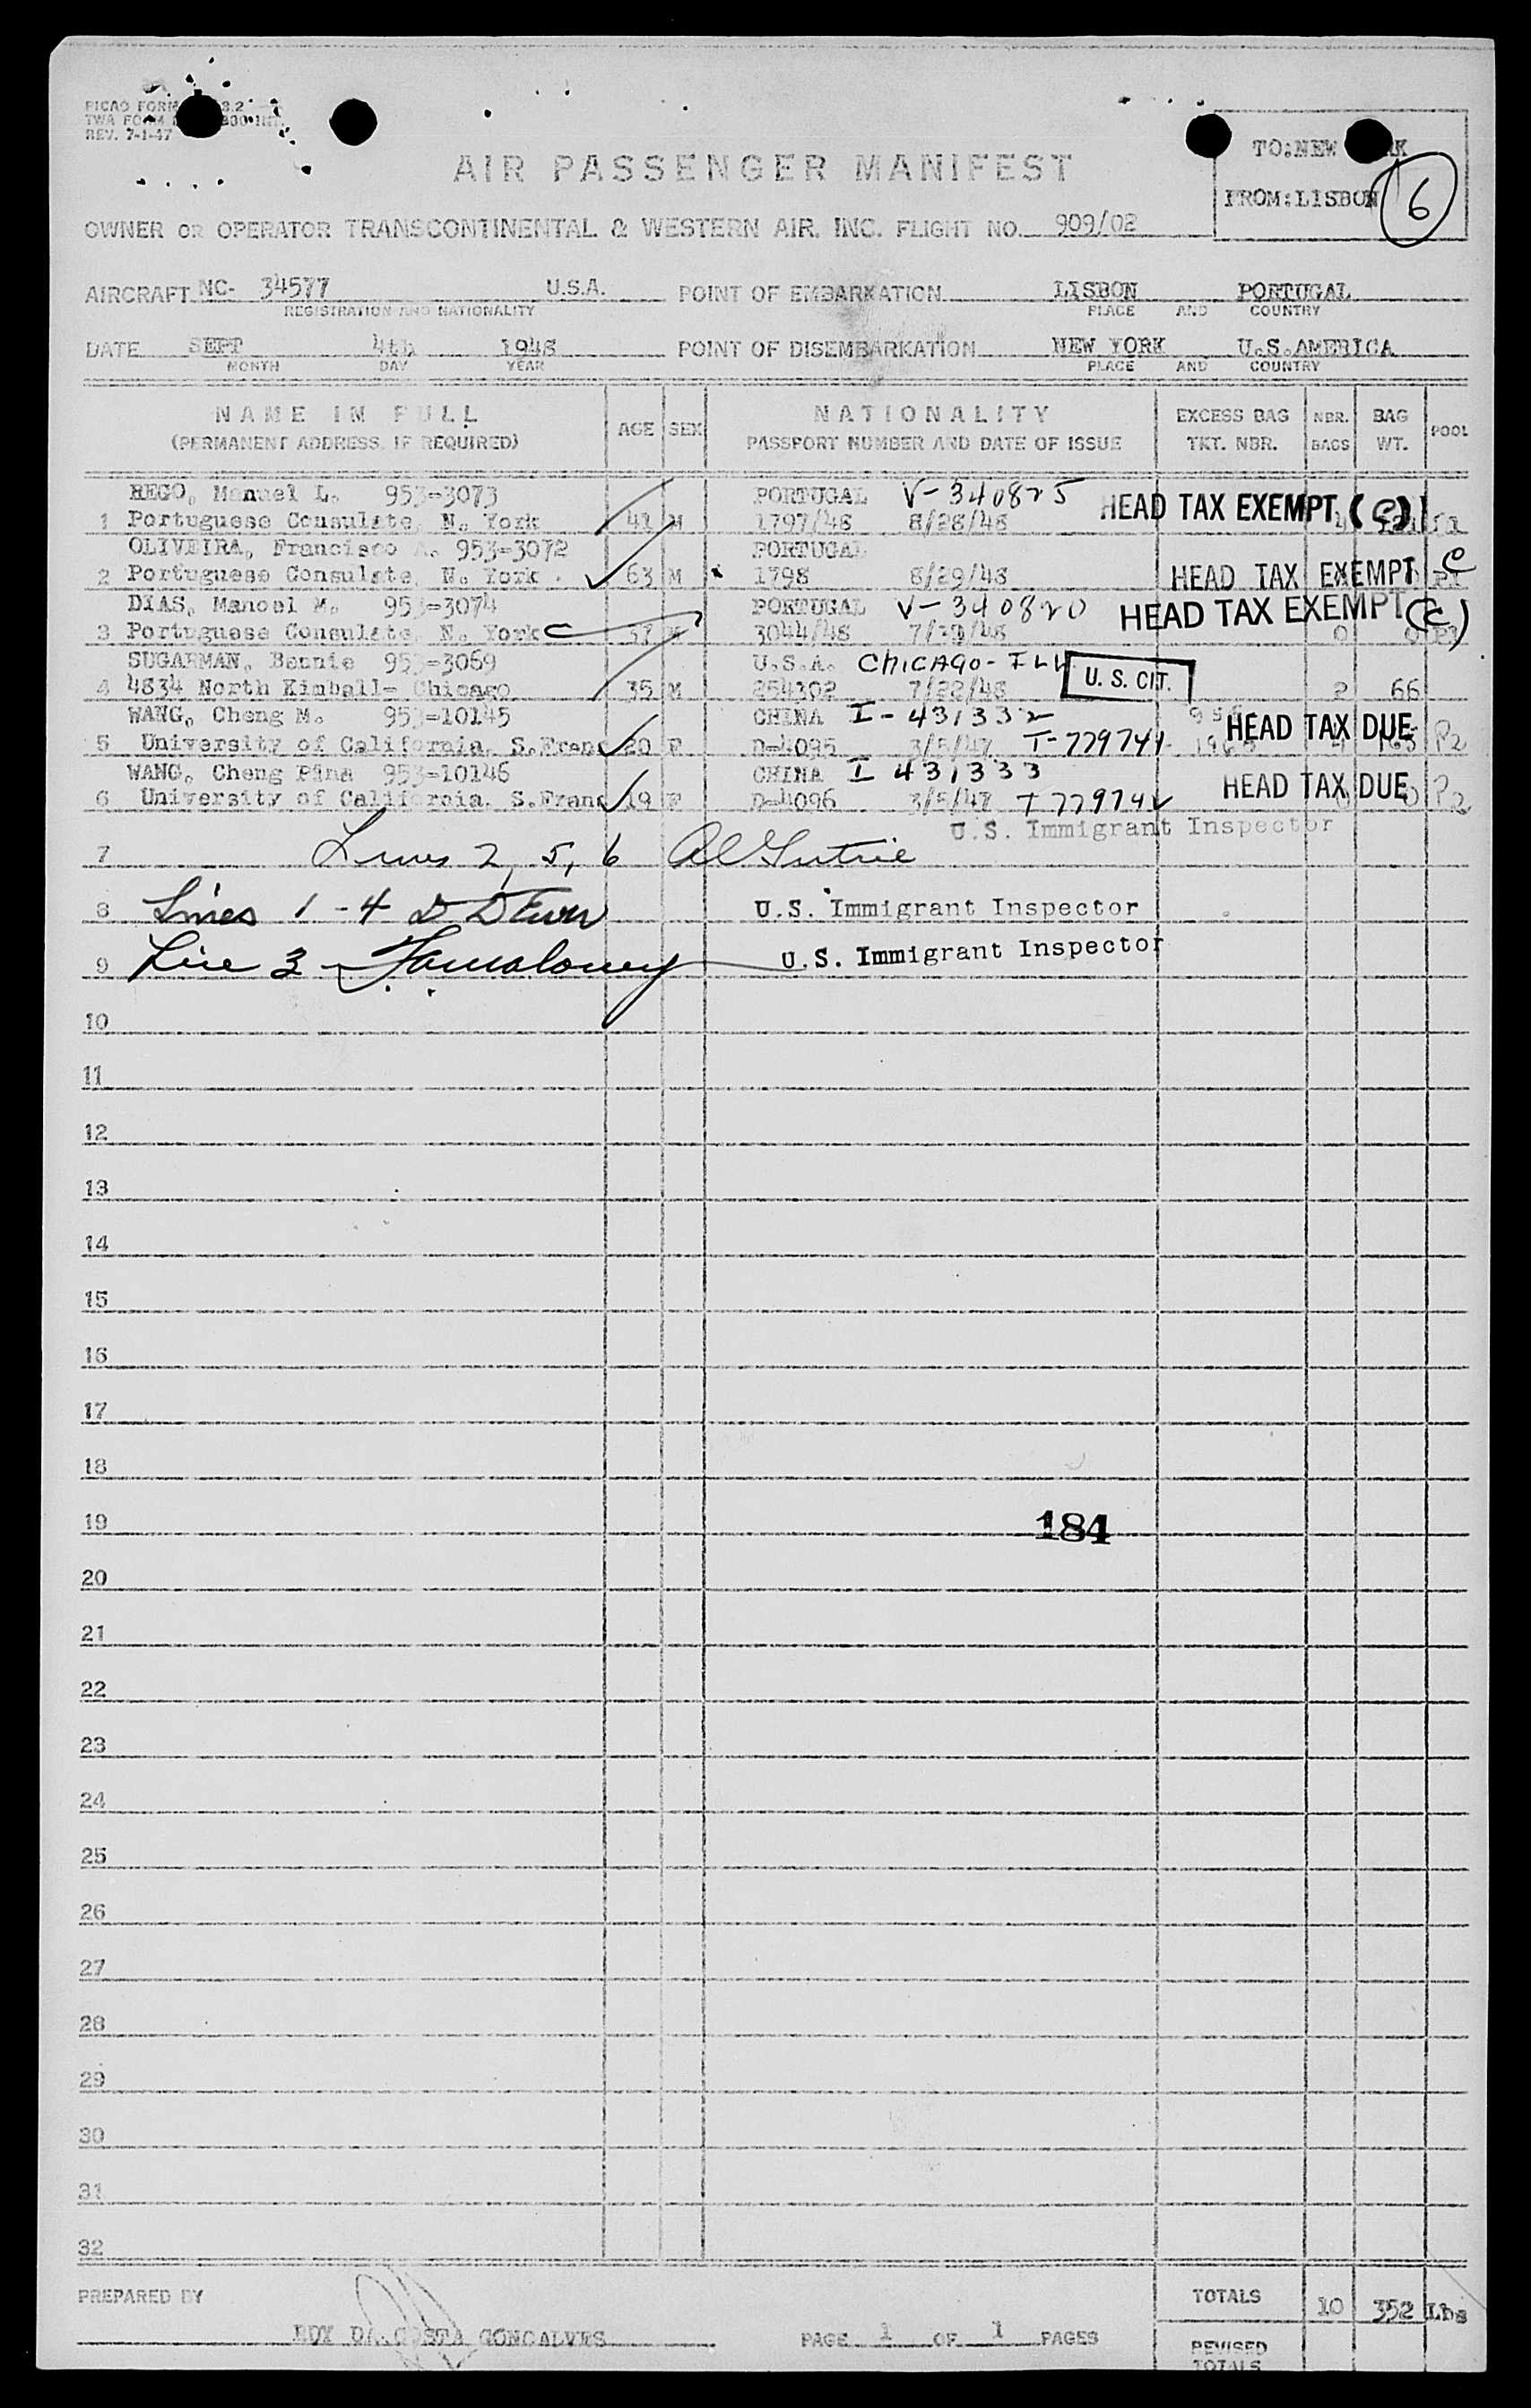 PICAO FORM 3.2
TWA FORM
REV. 7-1-47
TO:NEW RK
FROM:LISBON
6
AIR PASSENGER MANIFEST
OWNER OR OPERATOR TRANSCONTINENTAL & WESTERN AIR, INC. FLIGHT NO. 909/02
AIRCRAFT NC- 34577 U.S.A. POINT OF EMBARKATION LISBON PORTUGAL
REGISTRATION AND NATIONALITY PLACE AND COUNTRY
DATE SEPT 4th 1948 POINT OF DISEMBARKATION NEW YORK U.S.AMERICA
MONTH DAY YEAR PLACE AND COUNTRY
NAME IN FULL AGE SEX NATIONALITY EXCESS BAG NBR. BAG POOL
(PERMANENT ADDRESS IF REQUIRED) PASSPORT NUMBER AND DATE OF ISSUE TKT. NBR. BAGS WT.
REGO, Manuel L. 953-3073 PORTUGAL V-340825 HEAD TAX EXEMPT (C)
1 Portuguese Consulate, N. York 41 M 1797/48 8/28/48 4
OLIVEIRA, Francisco A. 953-3072 PORTUGAL
2 Portuguese Consulate, N. York 63 M 1798 8/29/48 HEAD TAX EXEMPT C
DIAS, Manoel M. 953-3074 PORTUGAL V-340820 HEAD TAX EXEMPT (C)
3 Portuguese Consulate, N. York 37 M 3044/48 7/30/48 0 0 P1
SUGARMAN, Bennie 953-3069 U.S.A. CHICAGO-ILL U. S. CIT.
4 4834 North Kimball- Chicago 35 M 254302 7/22/48 2 66
WANG, Cheng M. 953-10145 CHINA I-431332 HEAD TAX DUE
5 University of California, S.Franc 20 F D-4095 3/5/47 T-779741 P2
WANG, Cheng Pina 953-10146 CHINA I 431333 HEAD TAX DUE
6 University of California, S.Franc 19 F D-4096 3/5/47 T 779742 0 P2
U.S. Immigrant Inspector
7 Lines 2, 5, 6
8 Lines 1-4 U.S. Immigrant Inspector
9 Line 3 U.S. Immigrant Inspector
10
11
12
13
14
15
16
17
18
19 184
20
21
22
23
24
25
26
27
28
29
30
31
32
PREPARED BY TOTALS 10 352 Lbs
EDY DA COSTA GONCALVES PAGE 1 OF 1 PAGES REVISED
TOTALS